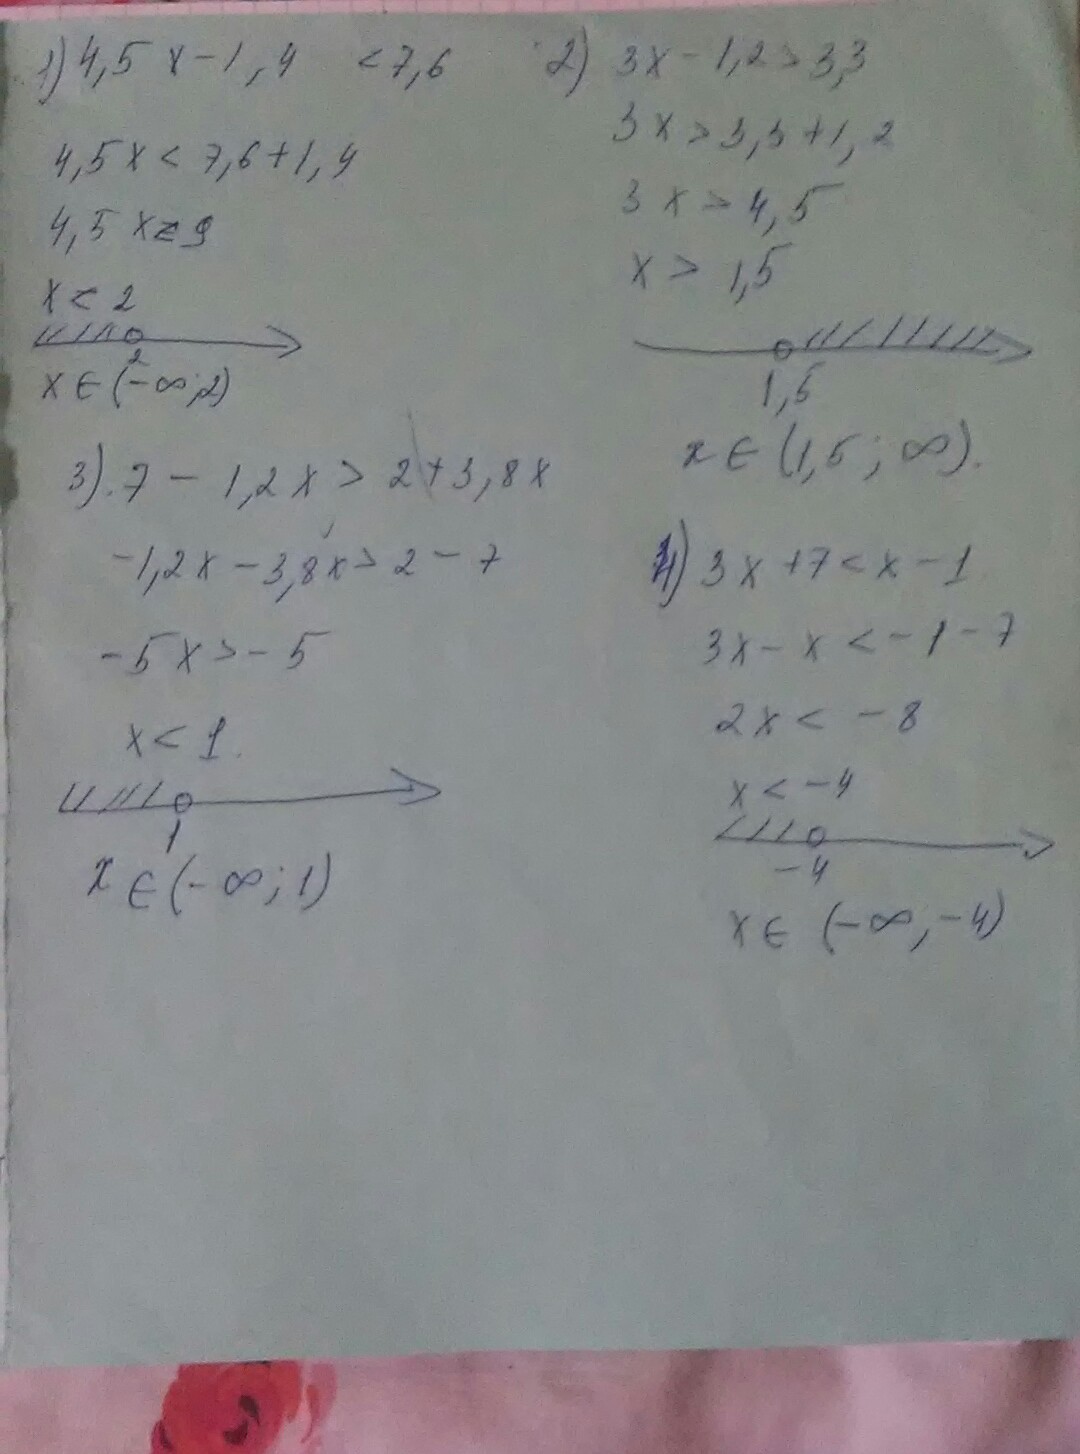 1) 4,5 x - 1,4 < 7,6
4,5x < 7,6 + 1,4
4,5 x < 9
x < 2
2
x ∈ (-∞; 2)
2) 3x - 1,2 > 3,3
3x > 3,3 + 1,2
3x > 4,5
x > 1,5
1,5
x ∈ (1,5; ∞).
3). 7 - 1,2x > 2 + 3,8x
-1,2x - 3,8x > 2 - 7
-5x > -5
x < 1.
1
x ∈ (-∞; 1)
4) 3x + 7 < x - 1
3x - x < -1 - 7
2x < -8
x < -4
-4
x ∈ (-∞, -4)